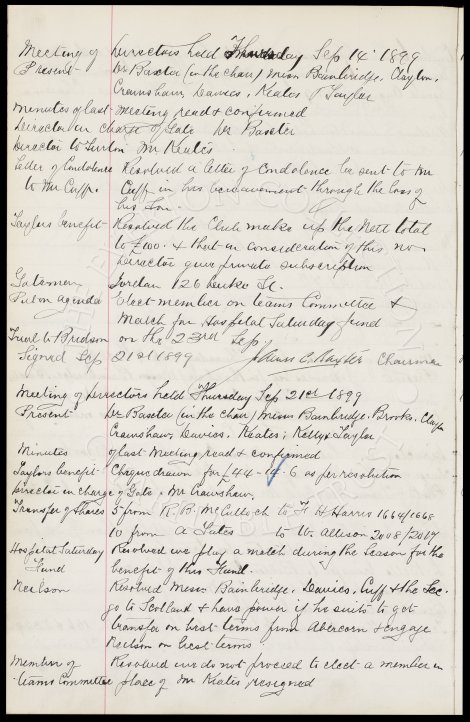 Meeting of Directors held Thursday Sep 14th 1899
Present Dr Baxter (in the chair) Messrs Bainbridge, Clayton,
Crawshaw, Davies, Keates & Taylor
Minutes of last meeting read & confirmed
Director in charge of Gate Dr Baxter
Director to Mr Keates
Letter of Condolence Resolved a letter of condolence be sent to Mr
to Mr Cuff Cuff in his bereavement through the loss of
his Son.
Taylors benefit Resolved the Club makes up the Nett total
to £100. & that in consideration of this no
Director give private subscription
Gatemen Jordan 126 St.
Put on agenda Elect member on teams Committee &
Match for Hospital Saturday fund
on the 23rd Sep
Signed Sep 21st 1899 Chairman
Meeting of Directors held Thursday Sep 21st 1899
Present Dr Baxter (in the chair) Messrs Bainbridge, Brooks, Clayton
Crawshaw, Davies, Keates, Kelly & Taylor
Minutes of last Meeting read & confirmed
Taylors benefit Cheque drawn for £44-14-6 as per resolution
Director in charge of Gate. Mr Crawshaw.
Transfer of Shares 5 from R. B. McCulloch to F H Harris 1664/1668
10 from A Yates to W. Allison 2008/2017
Hospital Saturday Resolved we play a match during the Season for the
Fund benefit of this Fund.
Neilson Resolved Messrs Bainbridge. Davies, Cuff & the Sec.
go to Scotland & have power if he suits to get
transfer on best terms from Abercorn & engage
Neilson on best terms
Member of Resolved we do not proceed to elect a member in
teams Committee place of Mr Keates resigned